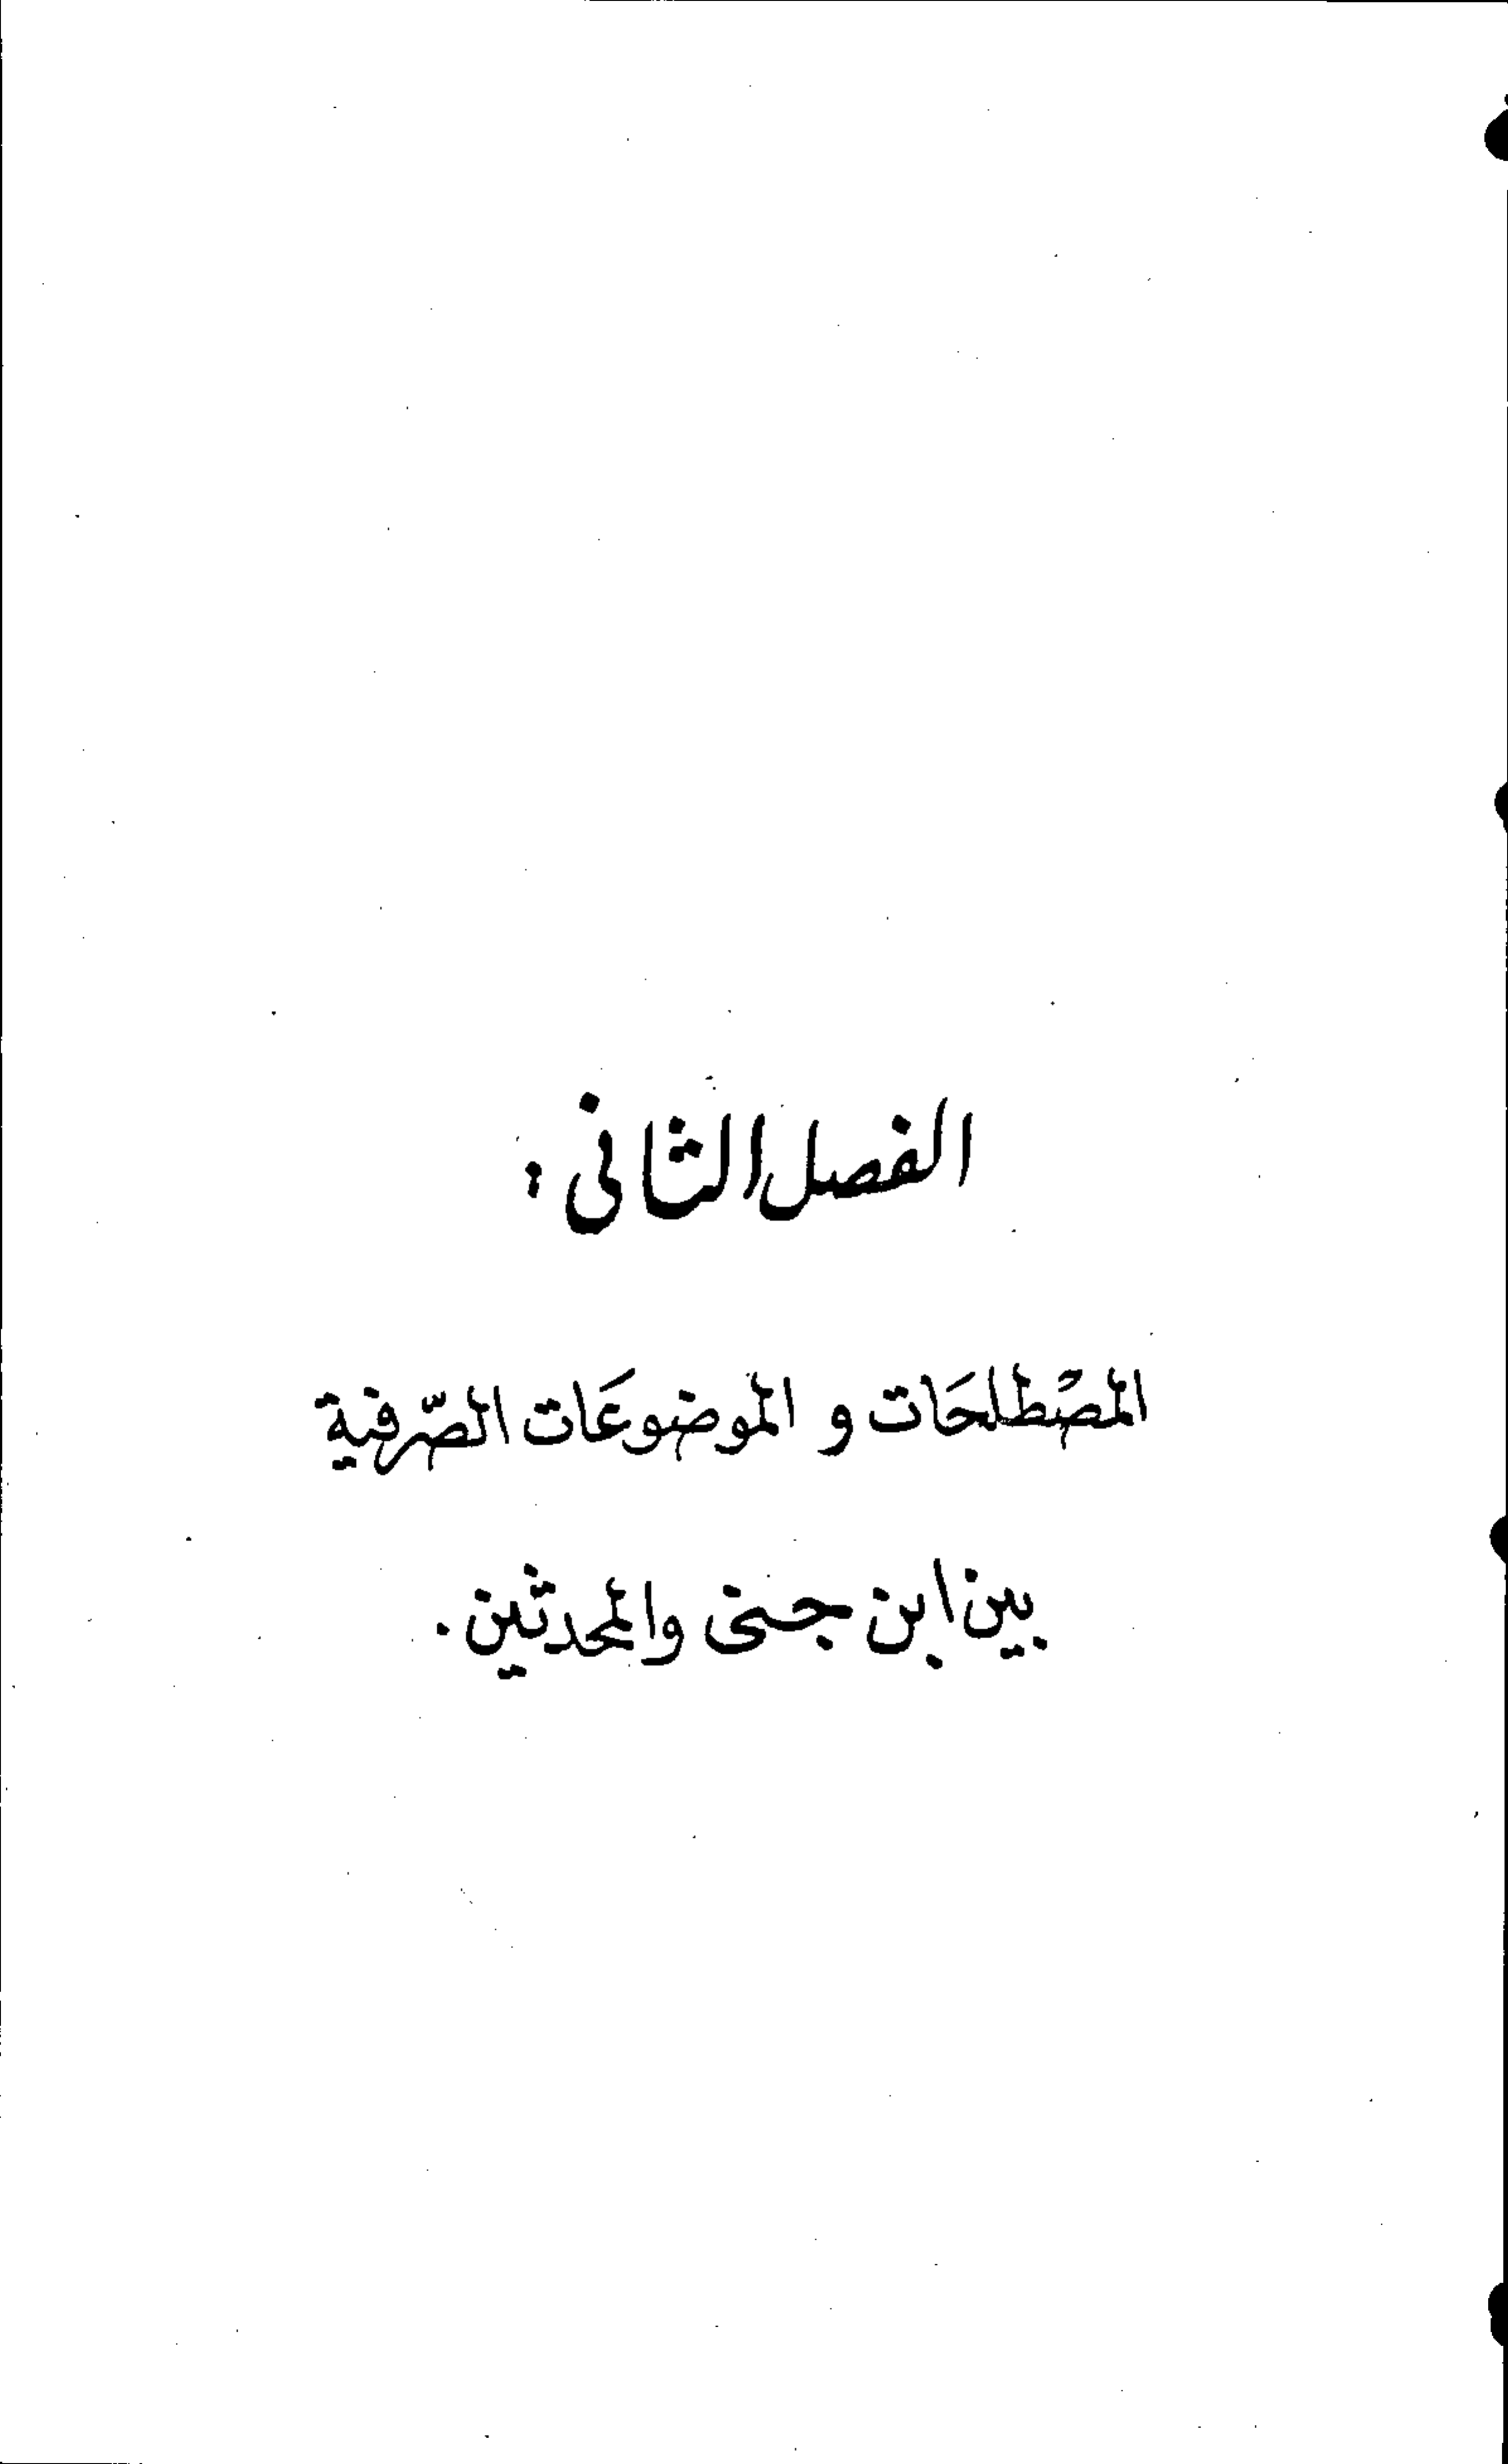 الفصل الثانى :
المصْطلحَات و الموضوعَات الصّرفية
بين ابن جنى والمحدثين .